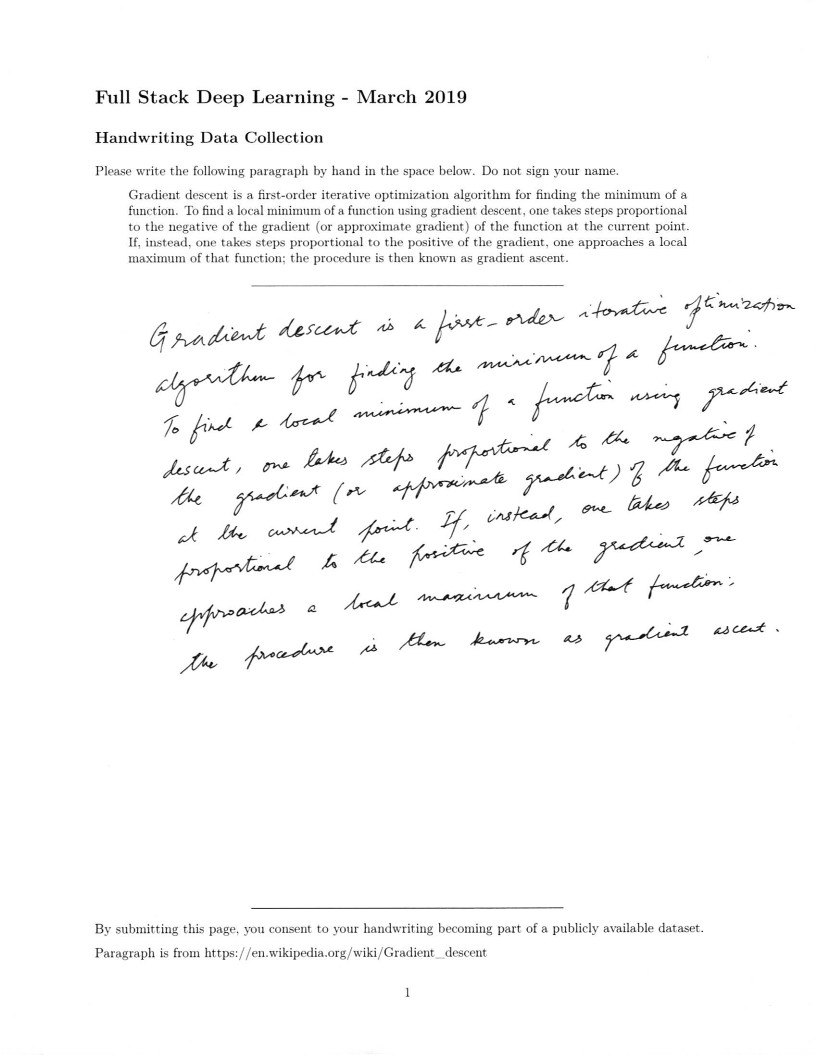 Full Stack Deep Learning - March 2019
Handwriting Data Collection
Please write the following paragraph by hand in the space below. Do not sign your name.
Gradient descent is a first-order iterative optimization algorithm for finding the minimum of a
function. To find a local minimum of a function using gradient descent, one takes steps proportional
to the negative of the gradient (or approximate gradient) of the function at the current point.
If, instead, one takes steps proportional to the positive of the gradient, one approaches a local
maximum of that function; the procedure is then known as gradient ascent.
Gradient descent is a first-order iterative optimization
algorithm for finding the minimum of a function.
To find a local minimum of a function using gradient
descent, one takes steps proportional to the negative of
the gradient (or approximate gradient) of the function
at the current point. If, instead, one takes steps
proportional to the positive of the gradient, one
approaches a local maximum of that function;
the procedure is then known as gradient ascent.
By submitting this page, you consent to your handwriting becoming part of a publicly available dataset.
Paragraph is from https://en.wikipedia.org/wiki/Gradient_descent
1